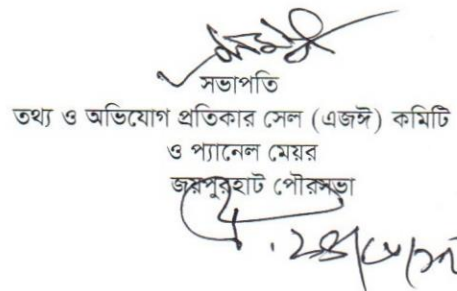 সভাপতি
তথ্য ও অভিযোগ প্রতিকার সেল (এজঈ) কমিটি
ও প্যানেল মেয়র
জয়পুরহাট পৌরসভা